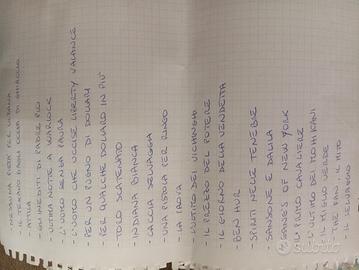 NESSUNA PIETÀ PER ULZANA
IL TEXANO DAGLI OCCHI DI GHIACCIO
GLI ANEDDOTI DI PADRE PIO
ULTIMA NOTTE A WARLOCK
L'UOMO SENZA PAURA
L'UOMO CHE UCCISE LIBERTY VALANCE
PER UN PUGNO DI DOLLARI
PER QUALCHE DOLLARO IN PIÙ
TORO SCATENATO
INDIANA BIANCA
CACCIA SELVAGGIA
UNA PISTOLA PER RINGO
L'ULTIMO DEI VICHINGHI
IL PREZZO DEL POTERE
IL GIORNO DELLA VENDETTA
BEN HUR
SPIRITI NELLE TENEBRE
SANSONE E DALILA
GANGS OF NEW YORK
IL PRIMO CAVALIERE
L'ULTIMO DEI MOHICANI
IL MIGLIO VERDE
IL SELVAGGIO
subito